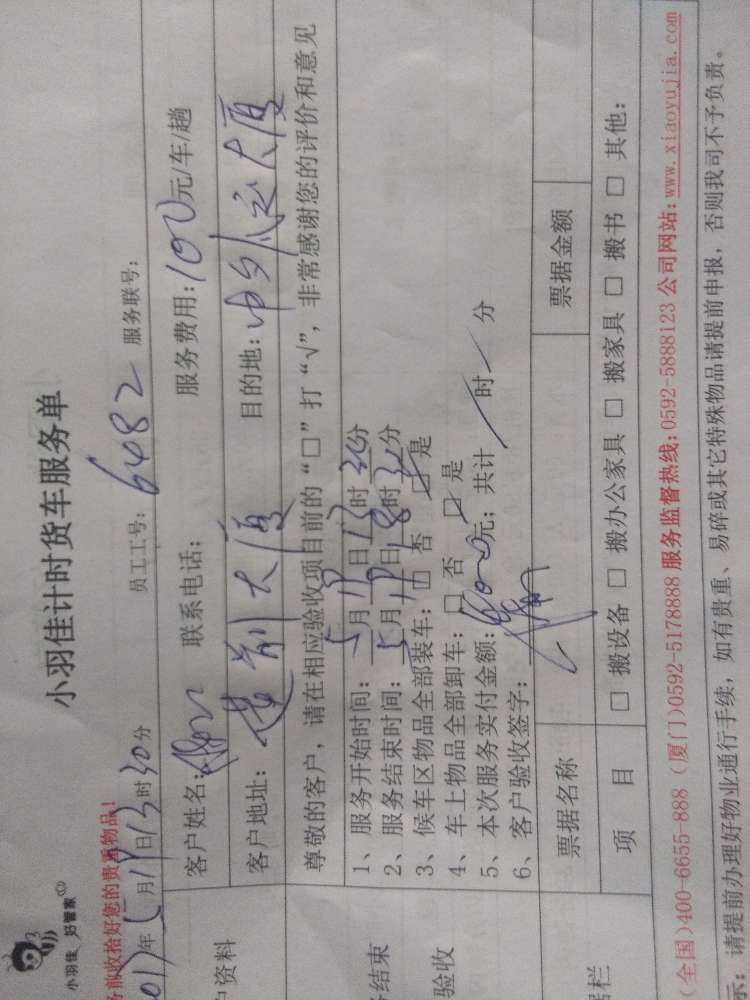 小羽佳 好管家
小羽佳计时货车服务单
务前收拾好您的贵重物品!
年5月 日13时30分
员工工号: 6482 服务联号:
户资料
客户姓名: 联系电话: 服务费用: 100元/车/趟
客户地址: 建剂大厦 目的地: 中外运大厦
尊敬的客户, 请在相应验收项目前的“□”打“√”, 非常感谢您的评价和意见
结束
验收
1、服务开始时间: 5月 日13时30分
2、服务结束时间: 5月 日18时30分
3、候车区物品全部装车: □ 否 ☑ 是
4、车上物品全部卸车: □ 否 ☑ 是
5、本次服务实付金额: 元; 共计 / 时 / 分
6、客户验收签字:
据栏
票据名称 票据金额
项 目 □ 搬设备 □ 搬办公家具 □ 搬家具 □ 搬书 □ 其他:
(全国)400-6655-888 (厦门)0592-5178888 服务监督热线: 0592-5888123 公司网站: www.xiaoyujia.com
示: 请提前办理好物业通行手续, 如有贵重、易碎或其它特殊物品请提前申报, 否则我司不予负责。